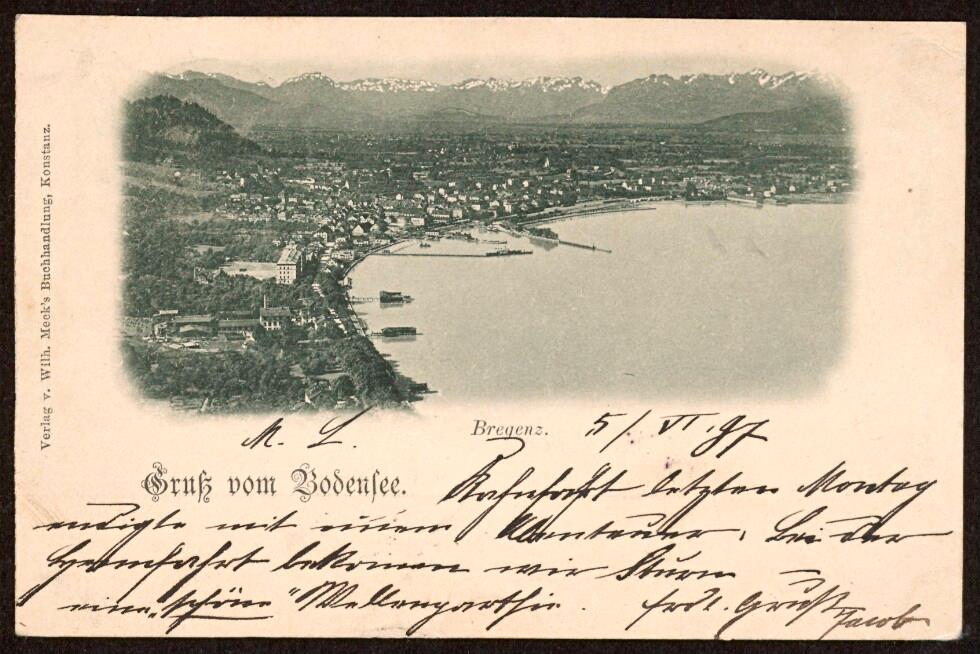 Verlag v. Wilh. Meck's Buchhandlung, Konstanz.
Bregenz.
5/VI.97
M. L.
Gruß vom Bodensee.
Kahnfahrt letzten Montag
endigte mit einem Abenteuer. Bei der
Heimfahrt bekomen wir Sturm
eine „schöne" Wellenparthie. frdl. Gruß
Jacob